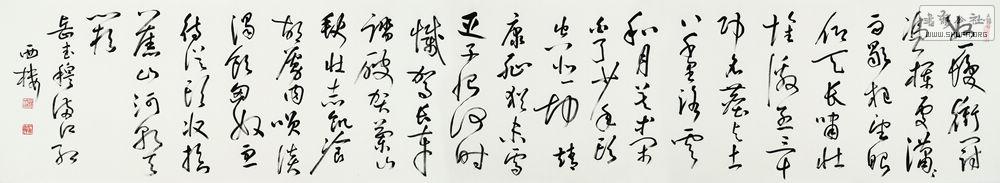 怒髮衝冠
憑欄處瀟瀟
雨歇抬望眼
仰天長嘯壯
懷激烈三十
功名塵與土
八千里路雲
和月莫等閑
白了少年頭
空悲切靖
康恥猶未雪
臣子恨何時
滅駕長車
踏破賀蘭山
缺壯志飢餐
胡虜肉笑談
渴飲匈奴血
待從頭收拾
舊山河朝天
闕
岳武穆滿江紅
西樓